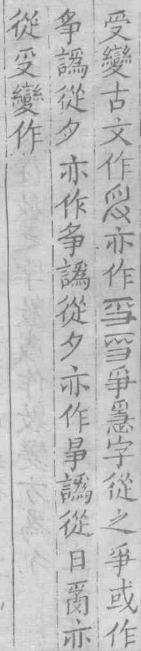 受變古文作𠬪亦作𤔔𤔌爭㥯字從之爭或作
争譌從夕亦作争譌從夕亦作爭譌從日𤔔亦
從受變作